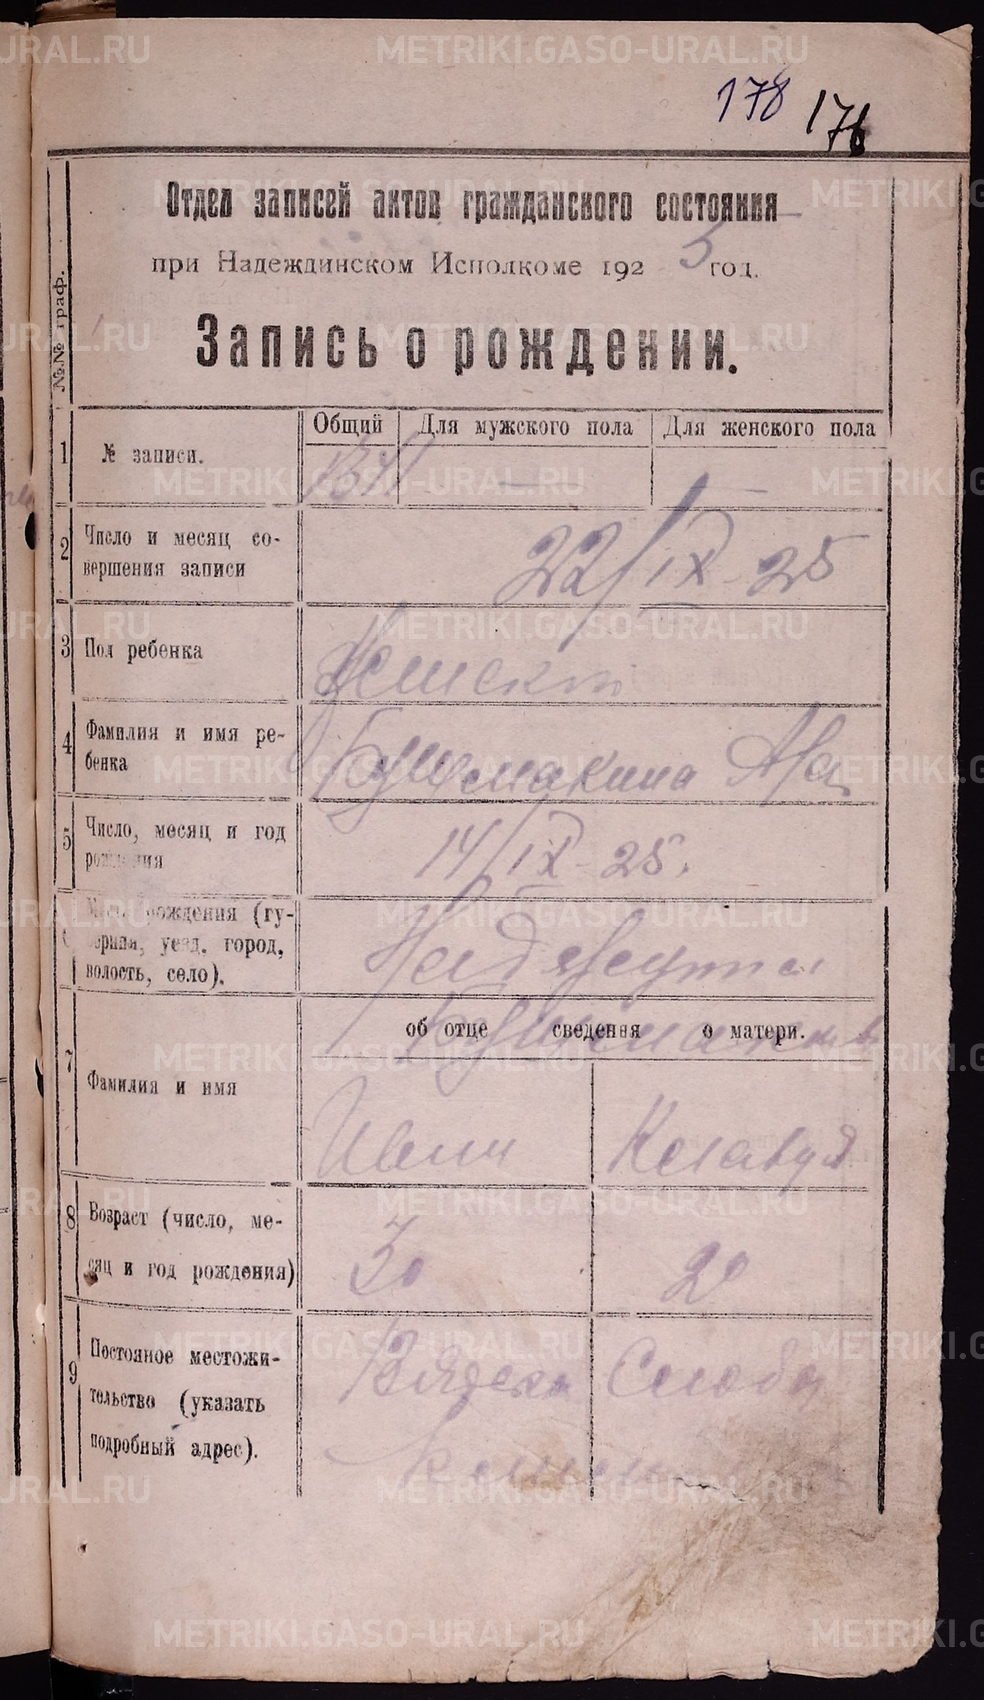 178 176
Отдел записей актов гражданского состояния
при Надеждинском Исполкоме 192 5 год.
Запись о рождении.
№№ граф.
Общий Для мужского пола Для женского пола
1 № записи.
2 Число и месяц со-
вершения записи
22/IX-25
3 Пол ребенка
Женск
4 Фамилия и имя ре-
бенка
Бушмакина
5 Число, месяц и год
рождения
14/IX-25.
рождения (гу-
берния, уезд, город,
волость, село).
об отце сведения о матери.
7 Фамилия и имя
Иван Клавдя
8 Возраст (число, ме-
сяц и год рождения)
30 20
9 Постояное местожи-
тельство (указать
подробный адрес).
METRIKI.GASO-URAL.RU